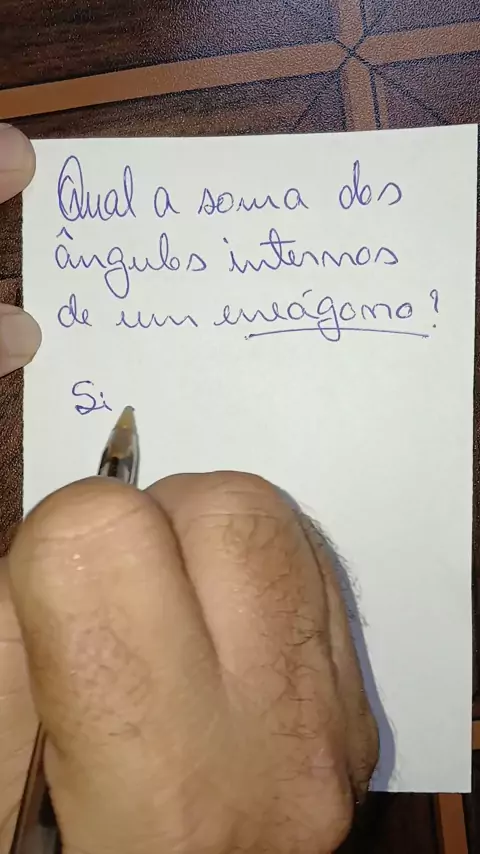 Qual a soma dos
ângulos internos
de um eneágono?
Si